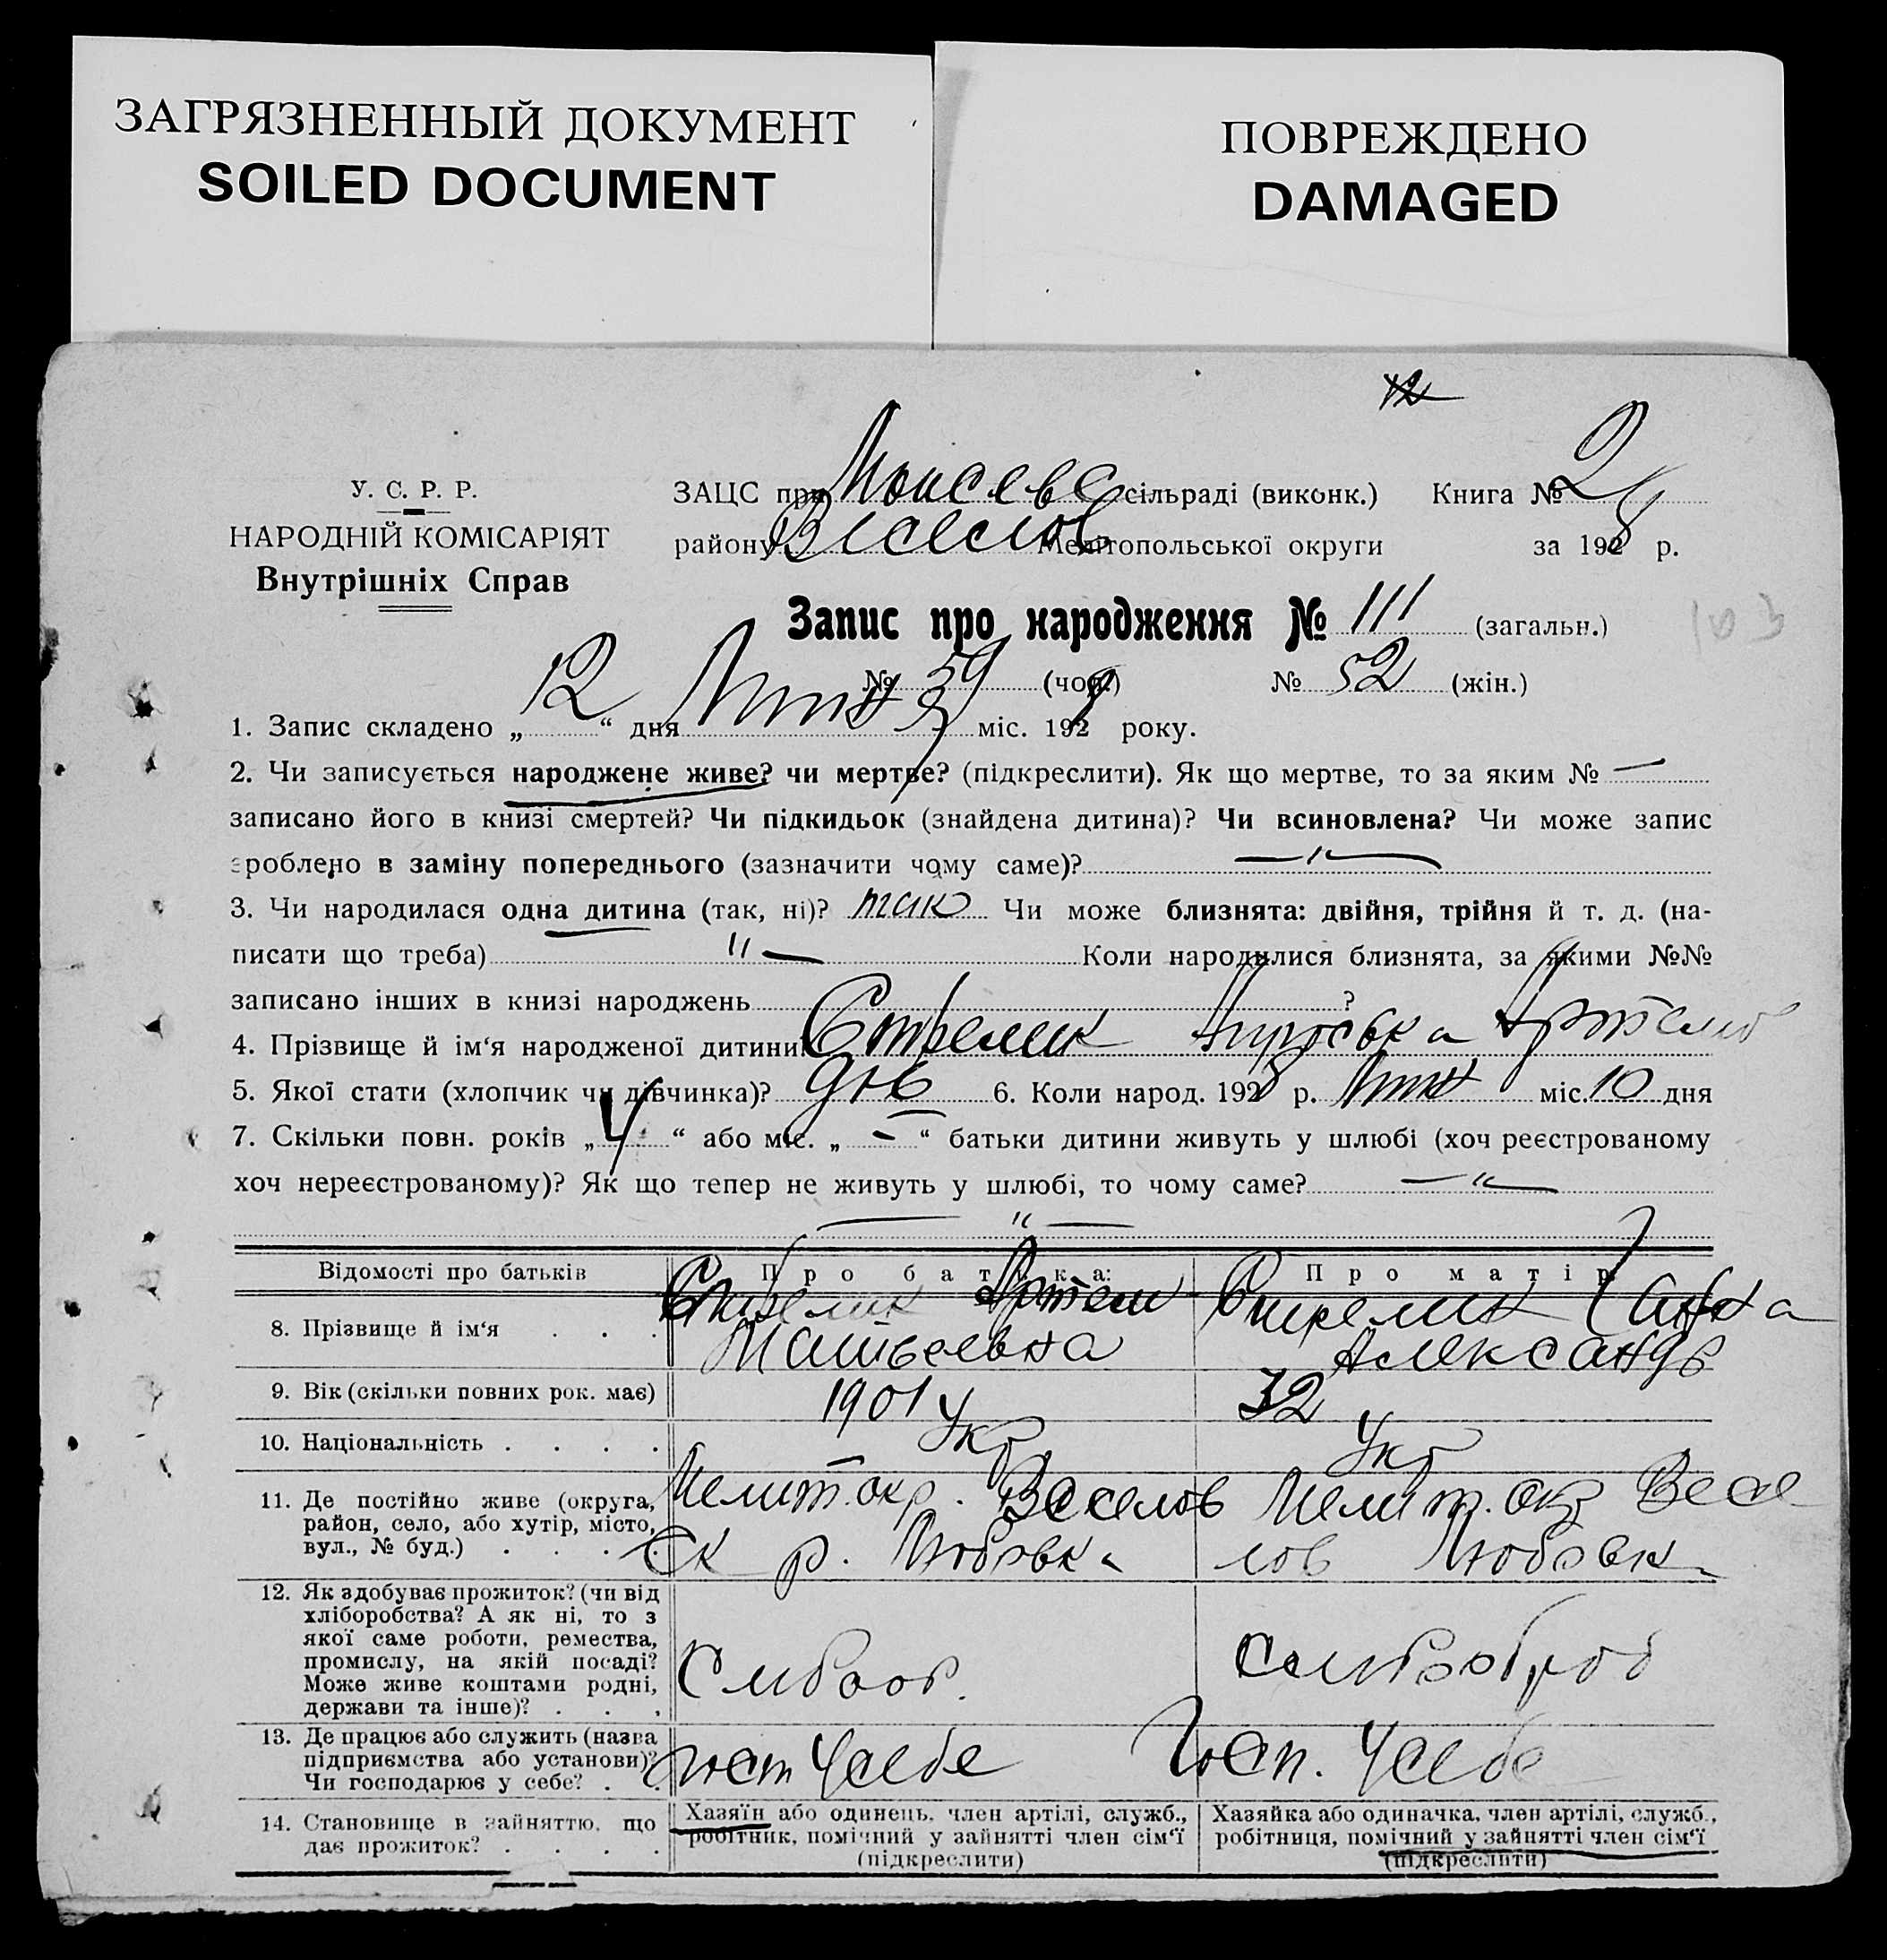 ЗАГРЯЗНЕННЫЙ ДОКУМЕНТ
SOILED DOCUMENT
ПОВРЕЖДЕНО
DAMAGED
12
У. С. Р. Р.
НАРОДНІЙ КОМІСАРІЯТ
Внутрішніх Справ
ЗАЦС при сільраді (виконк.) Книга № 2
району Веселов Мелітопольської округи за 1928 р.
Запис про народження № 111 (загальн.)
103
№ 59 (чол.) № 52 (жін.)
1. Запис складено „ 12 “ дня міс. 192 року.
2. Чи записується народжене живе? чи мертве? (підкреслити). Як що мертве, то за яким № —
записано його в книзі смертей? Чи підкидьок (знайдена дитина)? Чи всиновлена? Чи може запис
зроблено в заміну попереднього (зазначити чому саме)? —"—
3. Чи народилася одна дитина (так, ні)? так Чи може близнята: двійня, трійня й т. д. (на-
писати що треба) "— Коли народилися близнята, за якими №№
записано інших в книзі народжень ?
4. Прізвище й ім‘я народженої дитини Стрелик
5. Якої стати (хлопчик чи дівчинка)? дів 6. Коли народ. 1928 р. міс. 10 дня
7. Скільки повн. років „ 4 “ або міс. „ — “ батьки дитини живуть у шлюбі (хоч реєстрованому
хоч нереєстрованому)? Як що тепер не живуть у шлюбі, то чому саме? —"—
—"—
Відомості про батьків Про батька: Про матір
8. Прізвище й ім‘я . . . Стрелик Артем Стрелик
Александр
9. Вік (скільки повних рок. має) 1901 32
10. Національність . . . . Укр Укр
11. Де постійно живе (округа, район, село, або хутір, місто, вул., № буд.) . . . . Мелит. окр. Веселов Мелит. окр Весе
ск р. Любовка лов Любовк
12. Як здобуває прожиток? (чи від
хліборобства? А як ні, то з
якої саме роботи, ремества,
промислу, на якій посаді?
Може живе коштами родні,
держави та інше)? . . .
13. Де працює або служить (назва
підприємства або установи)?
Чи господарює у себе? . . Усебе Госп. Усебе
14. Становище в зайняттю, що
дає прожиток? . . . .
Хазяїн або одинець, член артілі, служб.,
робітник, помічний у зайнятті член сім‘ї
(підкреслити)
Хазяйка або одиначка, член артілі, служб.,
робітниця, помічний у зайнятті член сім‘ї
(підкреслити)